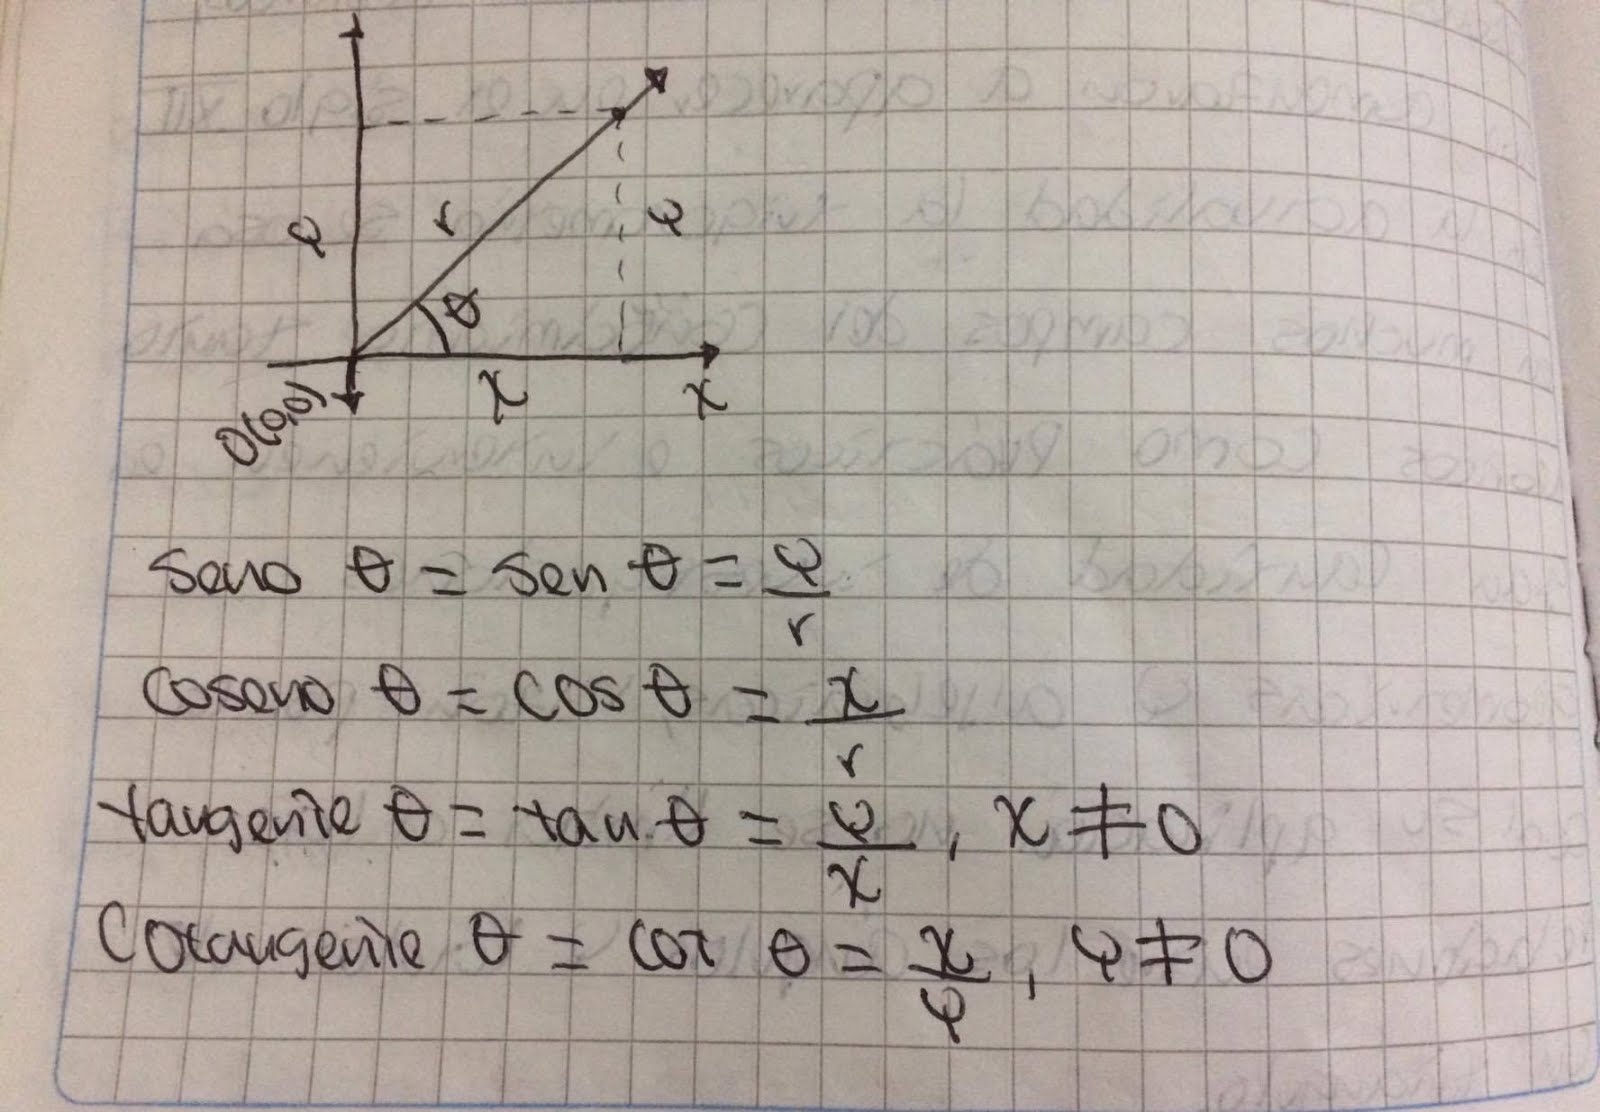 y r y
θ
O(0,0) x x
Seno θ = sen θ = y/r
Coseno θ = cos θ = x/r
tangente θ = tan θ = y/x , x ≠ 0
Cotangente θ = cot θ = x/y , y ≠ 0